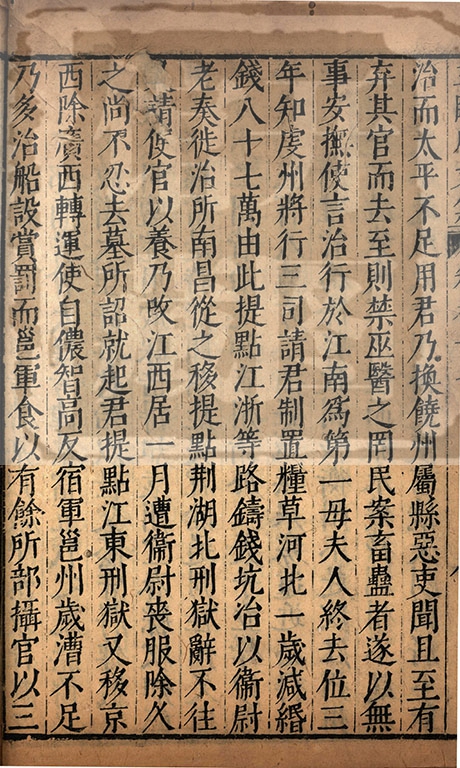 治而太平不足用君乃換饒州屬縣惡吏聞且至有
弃其官而去至則禁巫醫之罔民案畜蠱者遂以無
事安撫使言治行於江南爲第一毋夫人終去位三
年知虔州將行三司請君制置糧草河北一歲減緡
錢八十七萬由此提點江浙等路鑄錢坑冶以衞尉
老奏徙治所南昌從之移提點荆湖北刑獄辭不往
請便官以養乃改江西居一月遭衞尉喪服除久
之尚不忍去墓所詔就起君提點江東刑獄又移京
西除廣西轉運使自儂智高反宿軍邕州歲漕不足
乃多治船設賞罰而邕軍食以有餘所部攝官以三